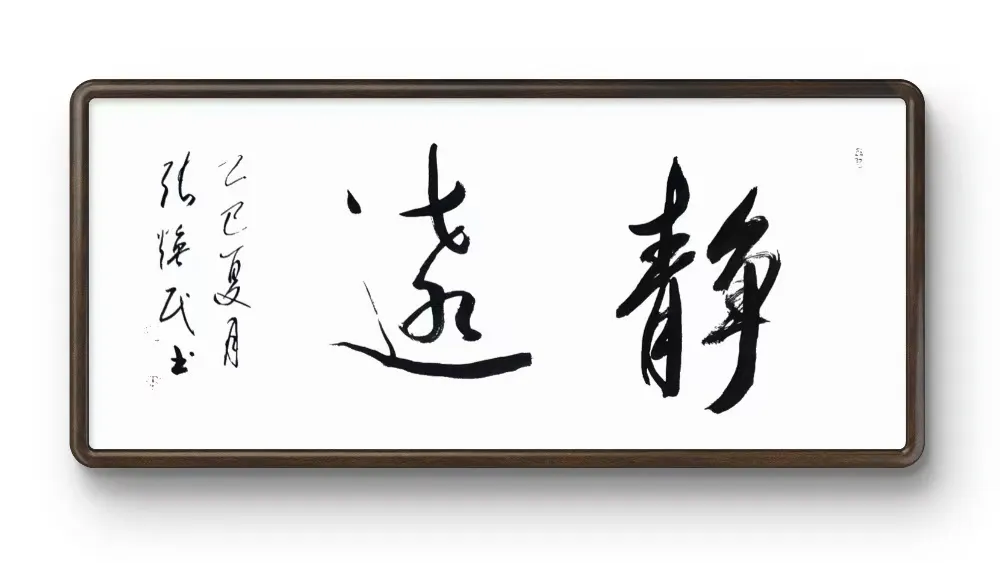 静遠
乙巳夏月
张焕民书